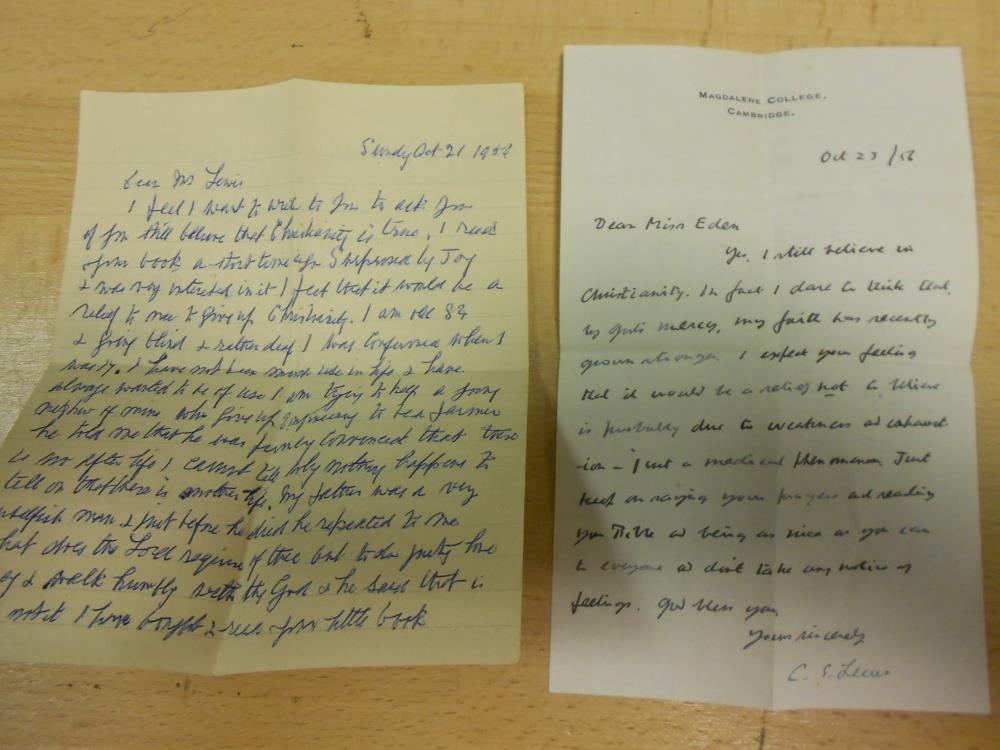 Sunday Oct 21 1956
Dear Mr Lewis
I feel I want to write to you to ask you
if you still believe that Christianity is true. I read
your book a short time ago Surprised by Joy
& was very interested in it I feel that it would be a
relief to me to give up Christianity. I am old 84
& going blind & rather deaf I was confirmed when I
was 17. I have not been much use in life & have
always wanted to be of use I am trying to help a young
nephew of mine who gave up engineering to be a farmer
he told me that he was firmly convinced that there
is no after life I cannot tell why nothing happens to
tell us that there is another life. My father was a very
unselfish man & just before he died he repeated to me
what does the Lord require of thee but to do justly love
& walk humbly with thy God & he said that is
not it I have bought & read your little book
MAGDALENE COLLEGE,
CAMBRIDGE.
Oct 23/56
Dear Miss Eden
Yes, I still believe in
Christianity. In fact I dare to think that,
by God's mercy, my faith has recently
grown stronger. I expect your feeling
that it would be a relief not to believe
is probably due to weakness and exhaust
-ion – just a medical phenomenon. Just
keep on saying your prayers and reading
your Bible and being as nice as you can
to everyone and don't take any notice of
feelings. God bless you,
Yours sincerely
C. S. Lewis